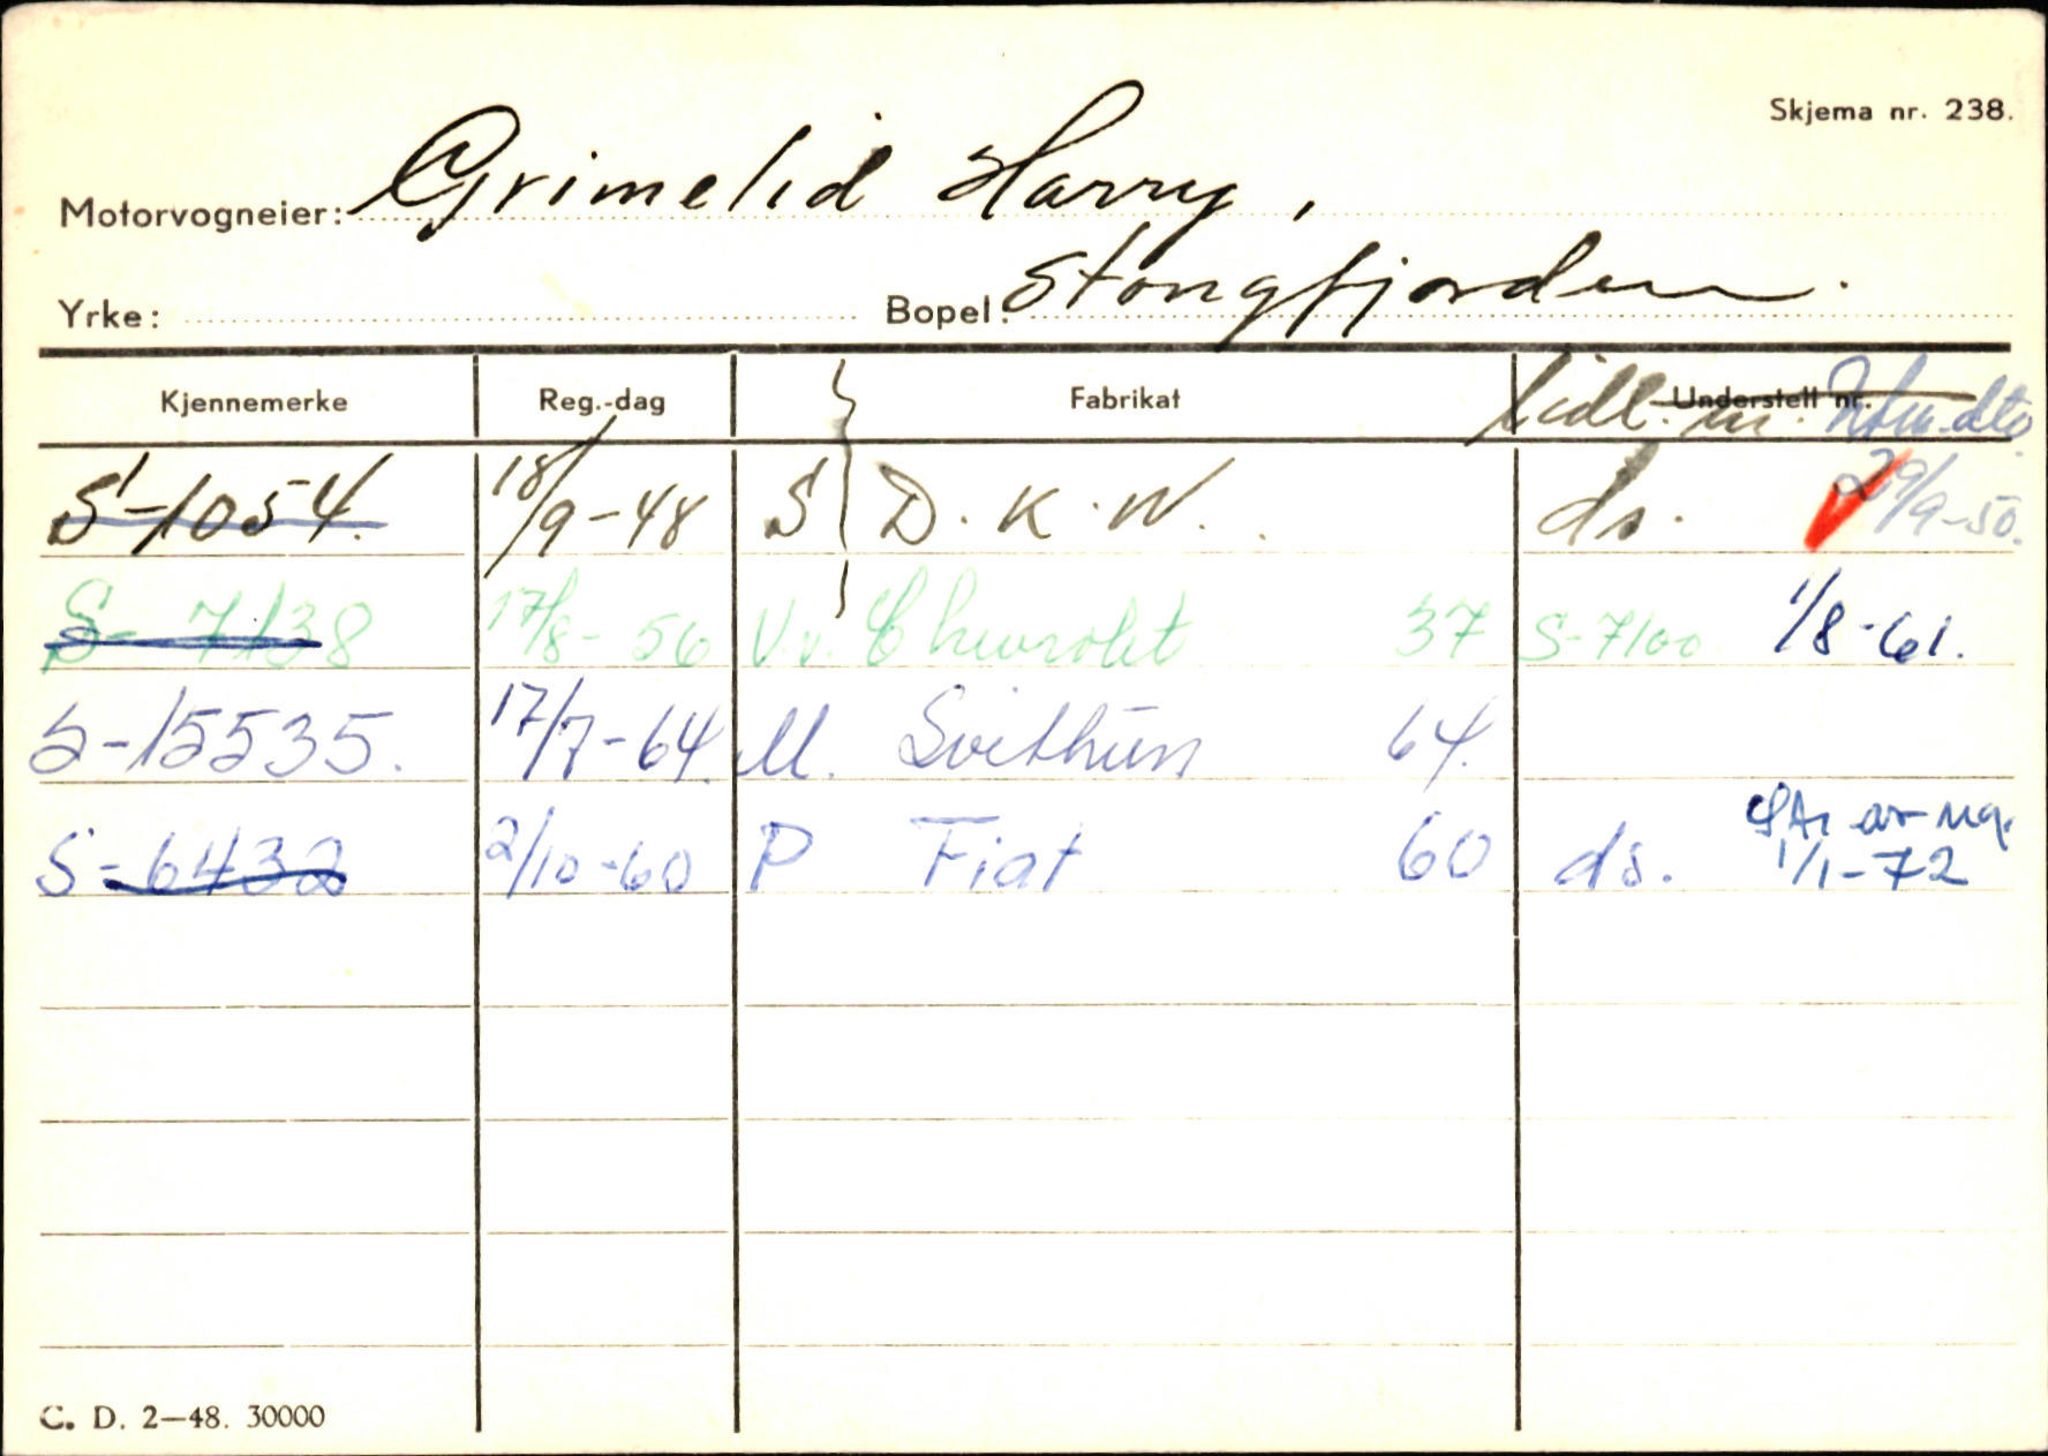 Skjema nr. 238.
Motorvogneier: Grimelid Harry,
Yrke: Bopel: Stongfjorden.
Kjennemerke Reg.-dag Fabrikat Understell nr. tidl. nr. Utm. dto.
S-1054. 18/9-48 S D.K.W. ds. 29/9-50.
S-7138 17/8-56 V.v. Chevrolet 37 S-7100 1/8-61.
S-15535. 17/7-64. M. Svithun 64.
S-6432 2/10-60 P Fiat 60 ds. 1/1-72
C. D. 2—48. 30000